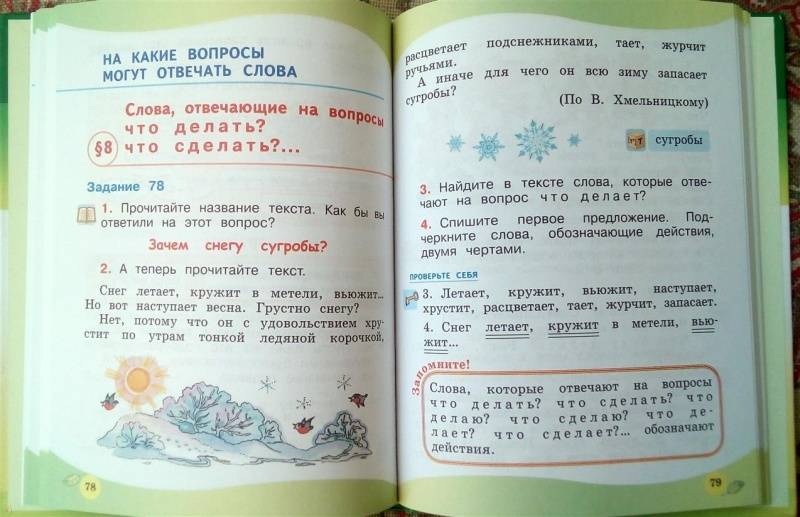 НА КАКИЕ ВОПРОСЫ
МОГУТ ОТВЕЧАТЬ СЛОВА
Слова, отвечающие на вопросы
что делать?
§8 что сделать?...
Задание 78
1. Прочитайте название текста. Как бы вы
ответили на этот вопрос?
Зачем снегу сугробы?
2. А теперь прочитайте текст.
Снег летает, кружит в метели, вьюжит...
Но вот наступает весна. Грустно снегу?
Нет, потому что он с удовольствием хру-
стит по утрам тонкой ледяной корочкой,
78
расцветает подснежниками, тает, журчит
ручьями.
А иначе для чего он всю зиму запасает
сугробы?
(По В. Хмельницкому)
сугробы
3. Найдите в тексте слова, которые отве-
чают на вопрос что делает?
4. Спишите первое предложение. Под-
черкните слова, обозначающие действия,
двумя чертами.
ПРОВЕРЬТЕ СЕБЯ
3. Летает, кружит, вьюжит, наступает,
хрустит, расцветает, тает, журчит, запасает.
4. Снег летает, кружит в метели, вью-
жит...
Запомните!
Слова, которые отвечают на вопросы
что делать? что сделать? что
делаю? что сделаю? что де-
лает? что сделает?... обозначают
действия.
79